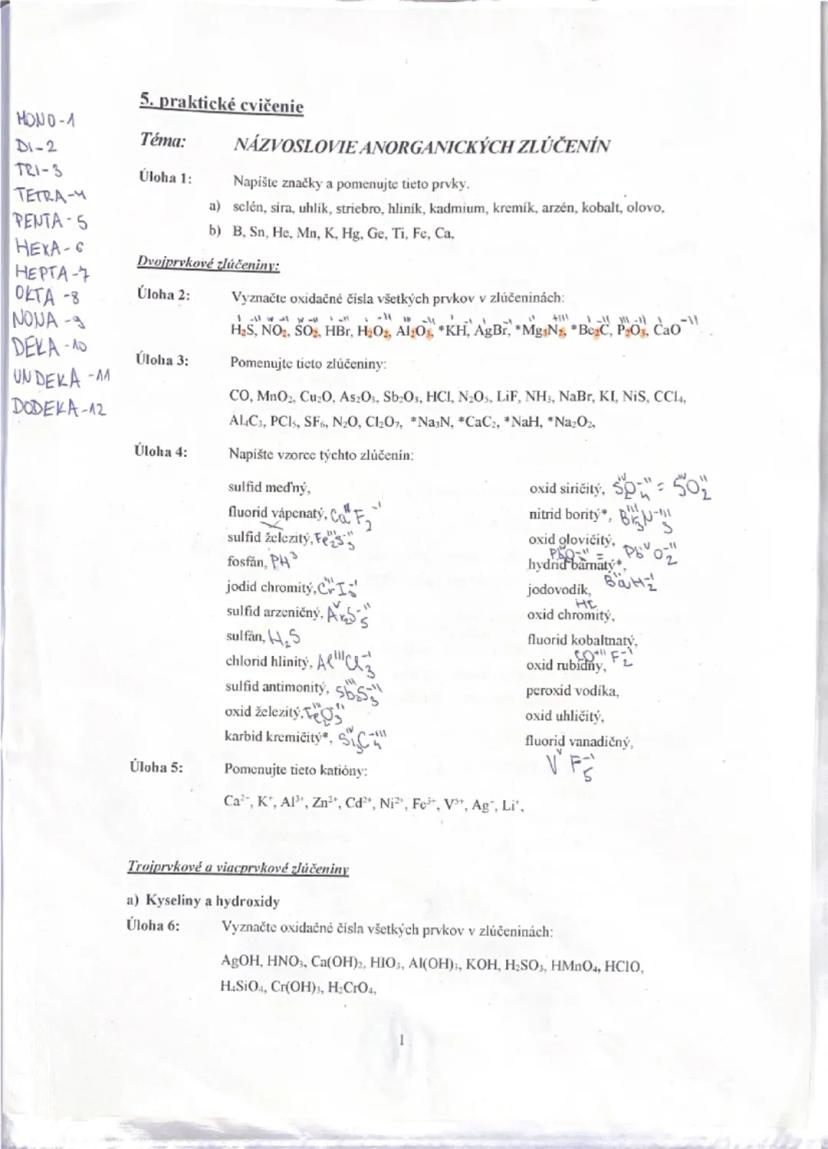 5. praktické cvičenie
MONO-1
DI-2
TRI-3
TETRA-4
PENTA-5
HEXA-6
HEPTA-7
OKTA-8
NONA-9
DEKA-10
UNDEKA-11
DODEKA-12
Téma: NÁZVOSLOVIE ANORGANICKÝCH ZLÚČENÍN
Úloha 1: Napíšte značky a pomenujte tieto prvky.
a) selén, síra, uhlík, striebro, hliník, kadmium, kremík, arzén, kobalt, olovo,
b) B, Sn, He, Mn, K, Hg, Ge, Ti, Fe, Ca,
Dvojprvkové zlúčeniny:
Úloha 2: Vyznačte oxidačné čísla všetkých prvkov v zlúčeninách:
H₂S, NO₂, SO₂, HBr, H₂O₂, Al₂O₃, *KH, AgBr, *Mg₃N₂, *Be₂C, P₂O₃, CaO
Úloha 3: Pomenujte tieto zlúčeniny:
CO, MnO₂, Cu₂O, As₂O₃, Sb₂O₃, HCl, N₂O₅, LiF, NH₃, NaBr, KI, NiS, CCl₄,
Al₄C₃, PCl₅, SF₆, N₂O, Cl₂O₇, *Na₃N, *CaC₂, *NaH, *Na₂O₂,
Úloha 4: Napíšte vzorce týchto zlúčenín:
sulfid meďný,
fluorid vápenatý, Caᴵᴵ F₂⁻ᴵ
sulfid železitý, Fe₂ᴵᴵᴵS₃⁻ᴵᴵ
fosfán, PH³
jodid chromitý, Crᴵᴵᴵ I₃⁻ᴵ
sulfid arzeničný,
sulfán, H₂S
chlorid hlinitý, Alᴵᴵᴵ Cl₃⁻ᴵ
sulfid antimonitý, Sb₂S₃⁻ᴵᴵ
oxid železitý, Fe₂ᴵᴵᴵO₃⁻ᴵᴵ
karbid kremičitý*,
oxid siričitý, = Sᴵⱽ O₂⁻ᴵᴵ
nitrid boritý*,
oxid olovičitý,
= Pb O₂⁻ᴵᴵ
hydrid bárnatý*, Baᴵᴵ H₂⁻ᴵ
jodovodík,
HI
oxid chromitý,
fluorid kobaltnatý,
CO⁺ᴵᴵ F₂⁻ᴵ
oxid rubídny,
peroxid vodíka,
oxid uhličitý,
fluorid vanadičný,
Vⱽ F₅⁻ᴵ
Úloha 5: Pomenujte tieto katióny:
Ca²⁺, K⁺, Al³⁺, Zn²⁺, Cd²⁺, Ni²⁺, Fe³⁺, V⁵⁺, Ag⁺, Li⁺,
Trojprvkové a viacprvkové zlúčeniny
a) Kyseliny a hydroxidy
Úloha 6: Vyznačte oxidačné čísla všetkých prvkov v zlúčeninách:
AgOH, HNO₃, Ca(OH)₂, HIO₃, Al(OH)₃, KOH, H₂SO₃, HMnO₄, HClO,
H₄SiO₄, Cr(OH)₃, H₂CrO₄,
1